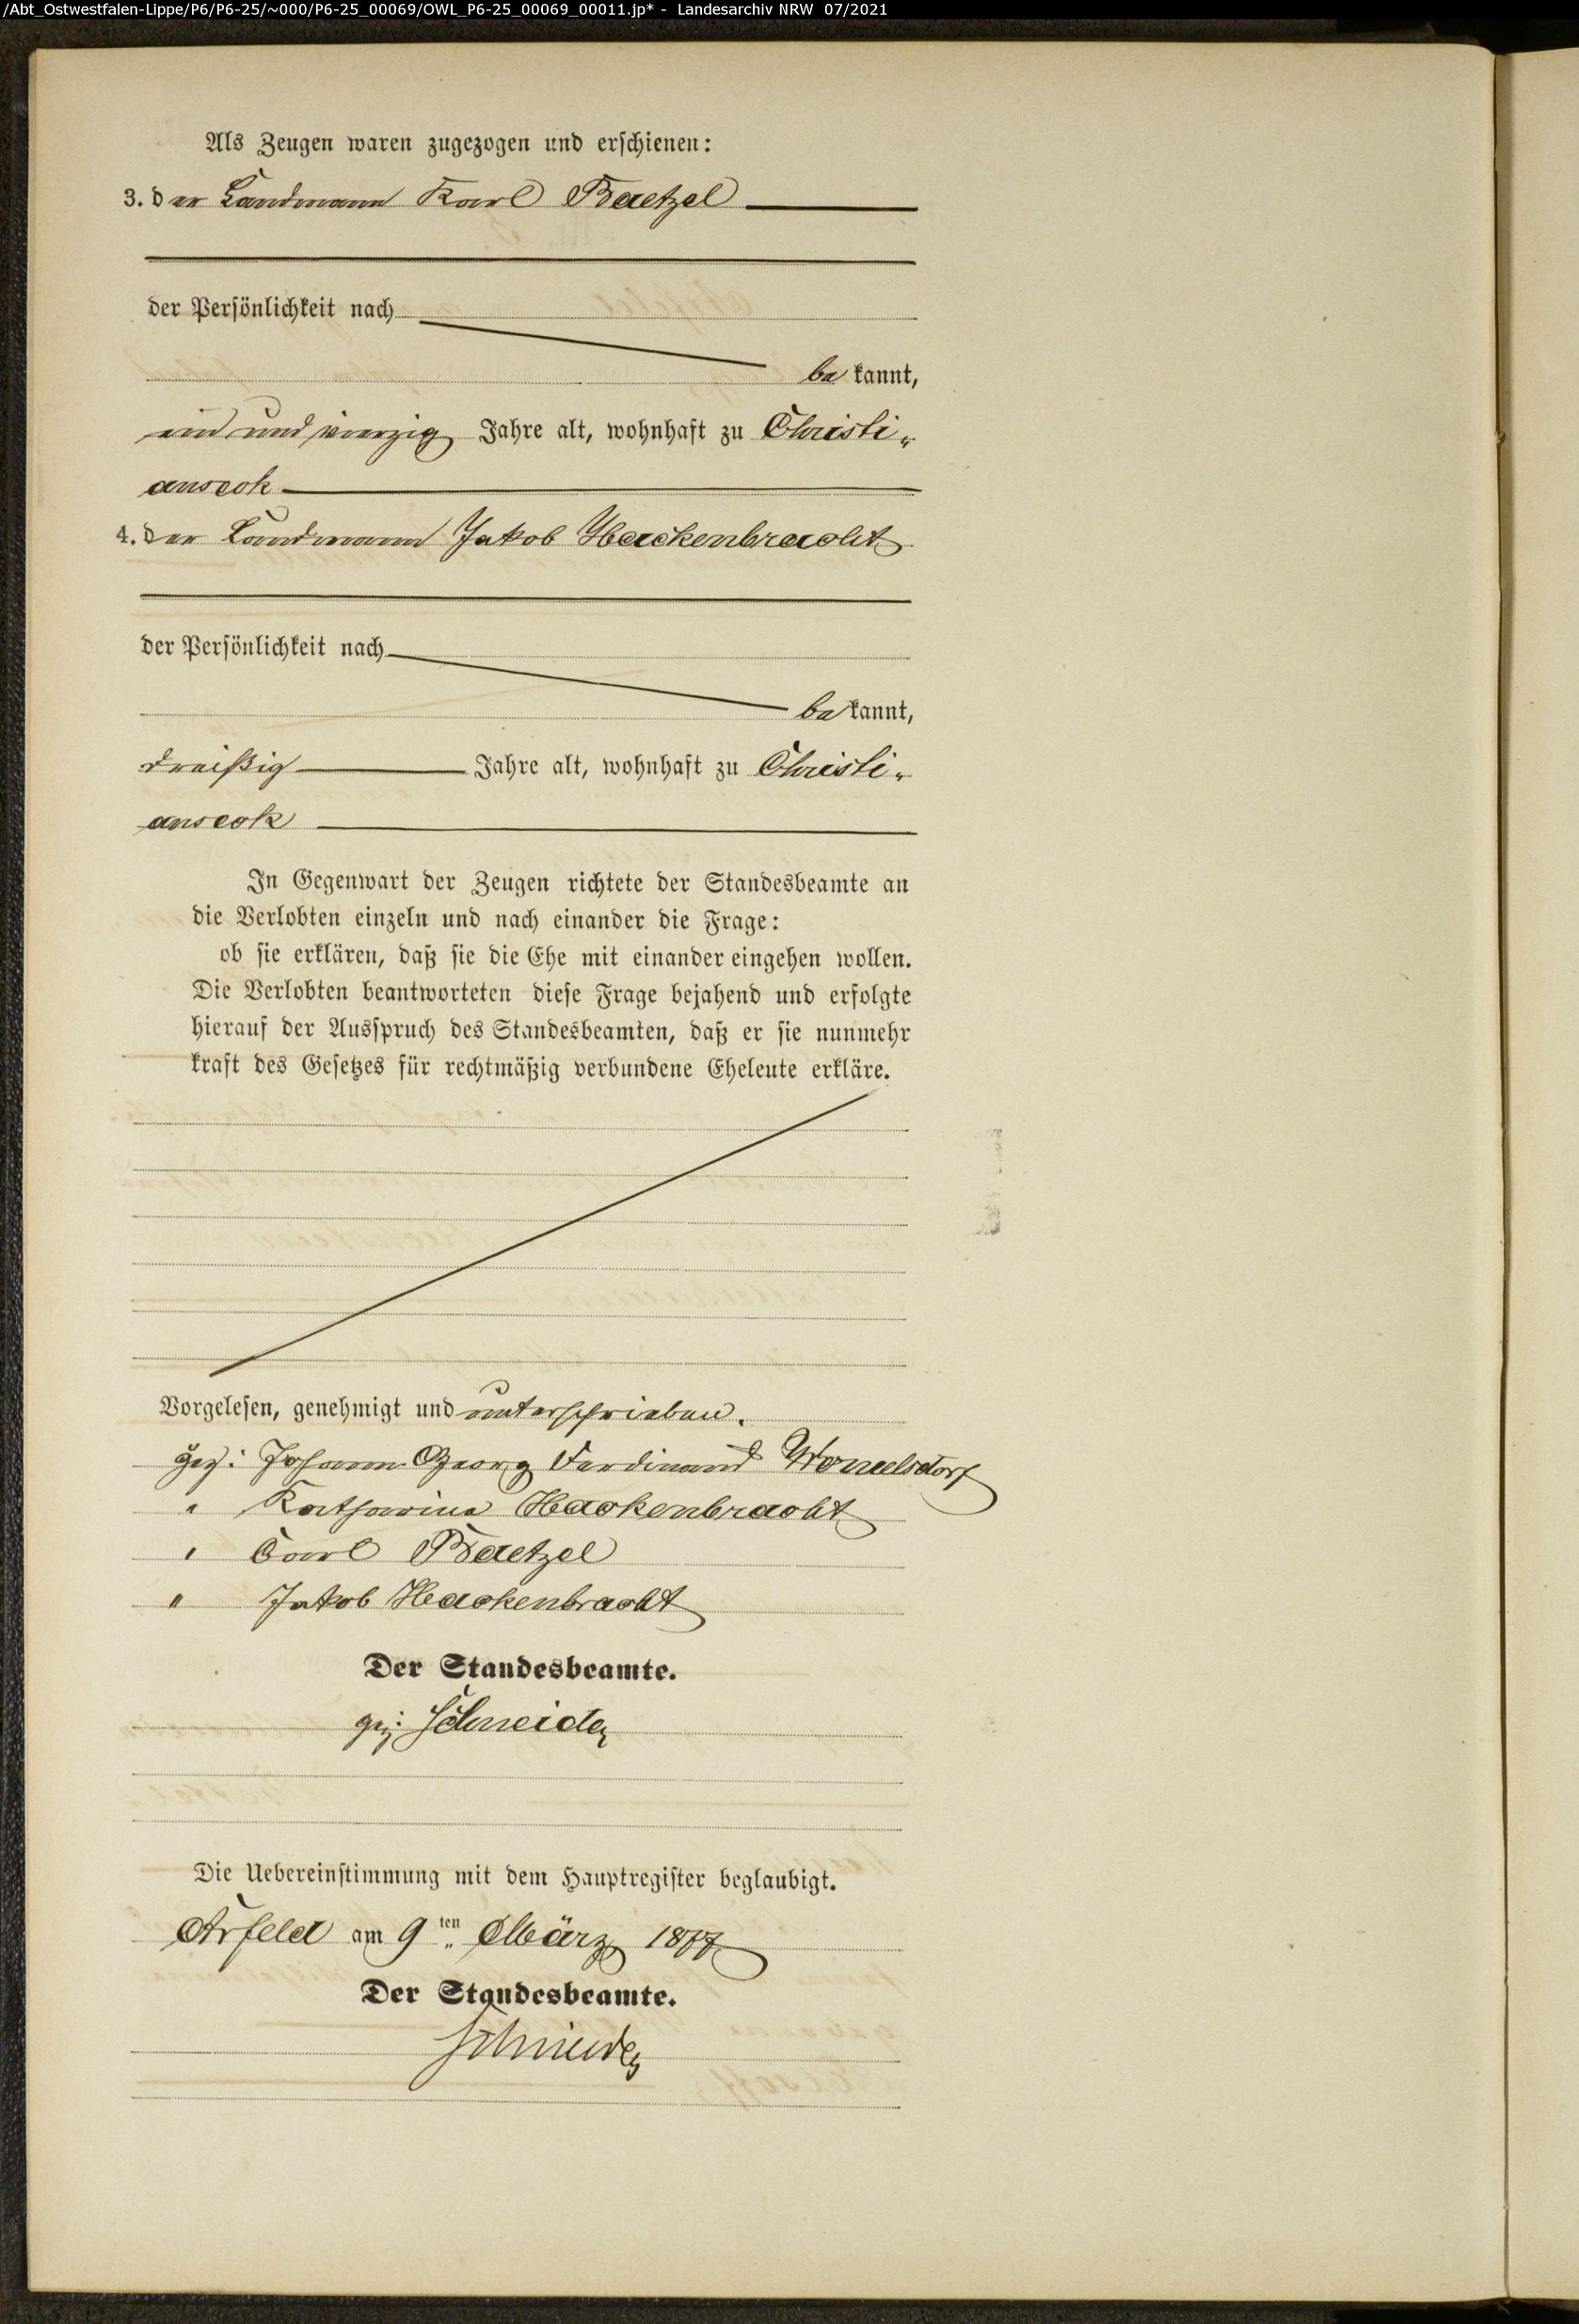 /Abt_Ostwestfalen-Lippe/P6/P6-25/~000/P6-25_00069/OWL_P6-25_00069_00011.jp* - Landesarchiv NRW 07/2021
Als Zeugen waren zugezogen und erschienen:
3. der Landmann Karl Baetzel
der Persönlichkeit nach
be kannt,
ein und vierzig Jahre alt, wohnhaft zu Christi„
anseck
4. der Landmann Jakob Hackenbracht
der Persönlichkeit nach
be kannt,
dreißig Jahre alt, wohnhaft zu Christi„
anseck
In Gegenwart der Zeugen richtete der Standesbeamte an
die Verlobten einzeln und nach einander die Frage:
ob sie erklären, daß sie die Ehe mit einander eingehen wollen.
Die Verlobten beantworteten diese Frage bejahend und erfolgte
hierauf der Ausspruch des Standesbeamten, daß er sie nunmehr
kraft des Gesetzes für rechtmäßig verbundene Eheleute erkläre.
Vorgelesen, genehmigt und unterschrieben.
gez: Johann Georg Ferdinand Womelsdorf
" Katharina Hackenbracht
" Carl Baetzel
" Jakob Hackenbracht
Der Standesbeamte.
gez: Schneider
Die Uebereinstimmung mit dem Hauptregister beglaubigt.
Arfeld am 9ten März 1877
Der Standesbeamte.
Schneider